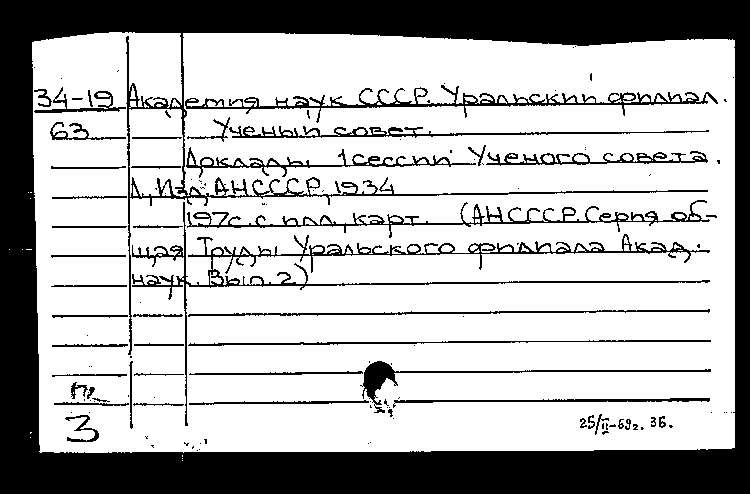 34-19 Академия наук СССР. Уральский филиал.
63 Ученый совет.
Доклады 1 сессии Ученого совета.
Л., Изд. АНСССР, 1934
197с. с илл., карт. (АНСССР. Серия об-
щая Труды Уральского филиала Акад.
наук. Вып. 2)
3
25/II-69г.